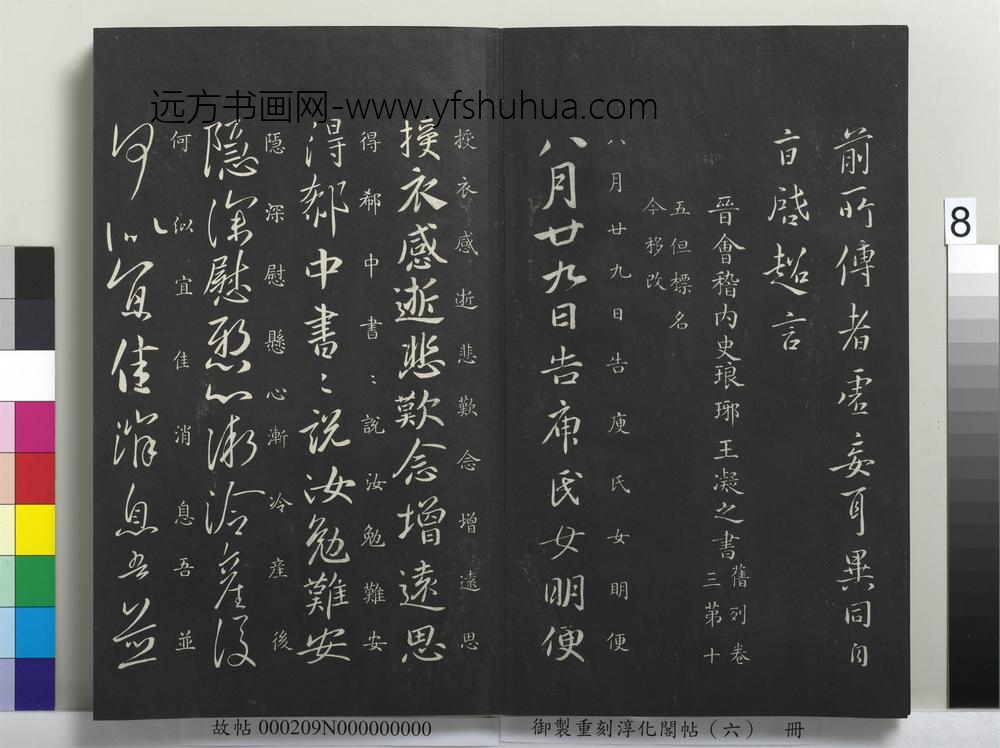 远方书画网-www.yfshuhua.com
前所傳者虛妄耳畢同自
啟超言
晉會稽内史琅琊王凝之書
舊列卷
三第十
五但標名
今移改
八月廿九日告庾氏女明便
八月廿九日告庾氏女明便
授衣感逝悲歎念增遠思
授衣感逝悲歎念增遠思
得郗中書〻說汝勉難安
得郗中書〻說汝勉難安
隱深慰懸心漸冷產後
隱深慰懸心漸冷產後
何似宜佳消息吾並
何似宜佳消息吾並
8
故帖 000209N000000000
御製重刻淳化閣帖（六） 冊